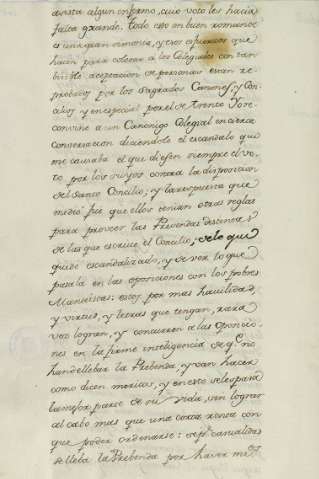 algun informe, cuio voto les hacia
falta grande. todo esto en buen romance
y otros esfuerzos que
hacen para colocar a los Colegiales con tan
terrible acceptacion de personas estan re-
probados por los Sagrados Canones, y Con-
cilios y en especial por el de Trento. Yo re-
convine a un Canonigo Colegial en cierta
conversacion diciendole el escandalo que
me causaba el que diesen siempre el vo-
to por los suyos contra la disposicion
del Santo Concilio; y la respuesta que
me dió fue que ellos tenian otras reglas
para proveer las Prevendas distintas
de las que escrive el Concilio; de lo qual
quedé escandalizado, y de ver lo que
pasa en las oposiciones con los pobres
Manteistas: estos por mas havilidad,
y virtud, y letras que tengan, rara
vez logran, y concurren a las Oposicio-
nes en la firme inteligencia de q.e no
han de llebar la Prebenda, y van hacer
como dicen meritos, y en esto se les pasa
la mejor parte de su vida, sin lograr
al cabo mas que una corta renta con
que poder ordenarse: si p.r casualidad
se lleba la Prebenda por haver